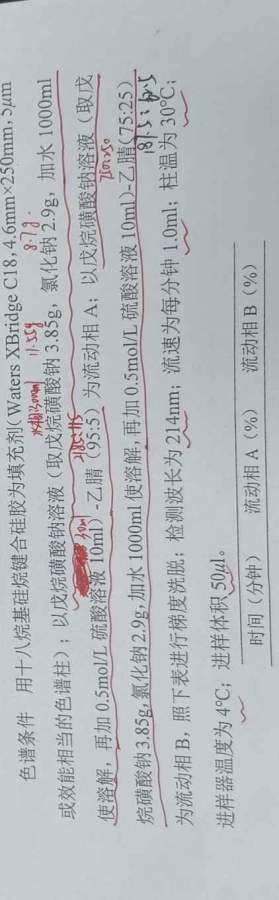 色谱条件 用十八烷基硅烷键合硅胶为填充剂(Waters XBridge C18, 4.6mm×250mm, 5μm
8.7g.
或效能相当的色谱柱)；以戊烷磺酸钠溶液（取戊烷磺酸钠 3.85g，氯化钠 2.9g，加水 1000ml
11.55g
使溶解，再加 0.5mol/L 硫酸溶液 10ml）-乙腈（95:5）为流动相 A；以戊烷磺酸钠溶液（取戊
30ml
烷磺酸钠 3.85g,氯化钠 2.9g,加水 1000ml 使溶解,再加 0.5mol/L 硫酸溶液 10ml)-乙腈(75:25)
为流动相 B，照下表进行梯度洗脱；检测波长为 214nm；流速为每分钟 1.0ml；柱温为 30℃；
进样器温度为 4℃；进样体积 50μl。
时间（分钟） 流动相 A（%） 流动相 B（%）